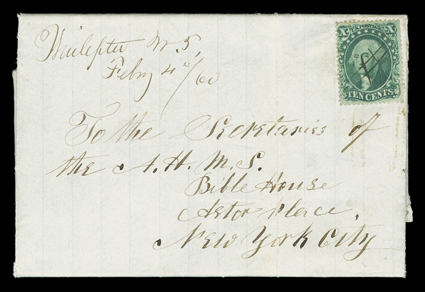 Waileptu W. T,
Febry 4th/60
X X
TEN CENTS
To the Secretaries of
the A. H. M. S.
Bible House
Astor Place.
New York City